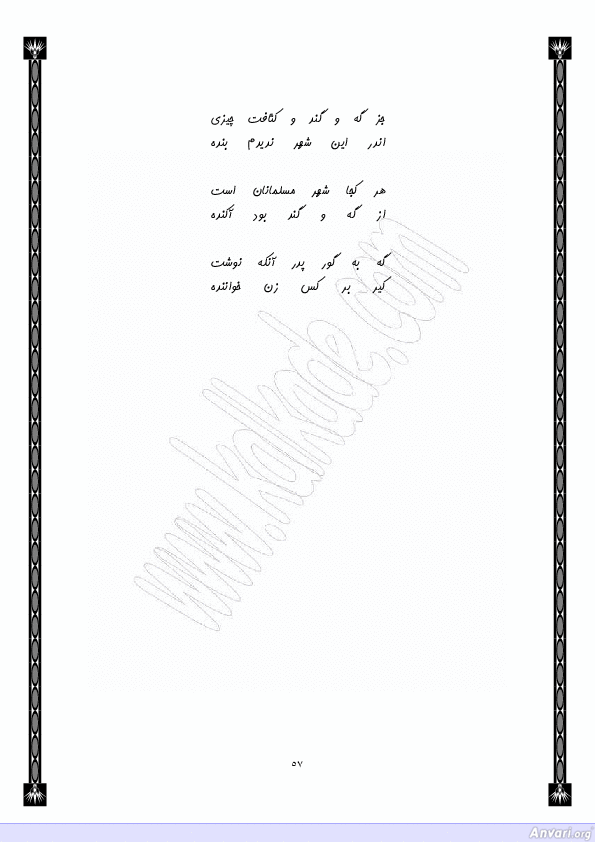 جز گه و گند و کثافت چیزی
اندر این شهر ندیدم بنده
هر کجا شهر مسلمانان است
از گه و گند بود آکنده
گه به گور پدر آنکه نوشت
کیر بر کس زن خواننده
www.kafkade.com
۵۷
Anvari.org